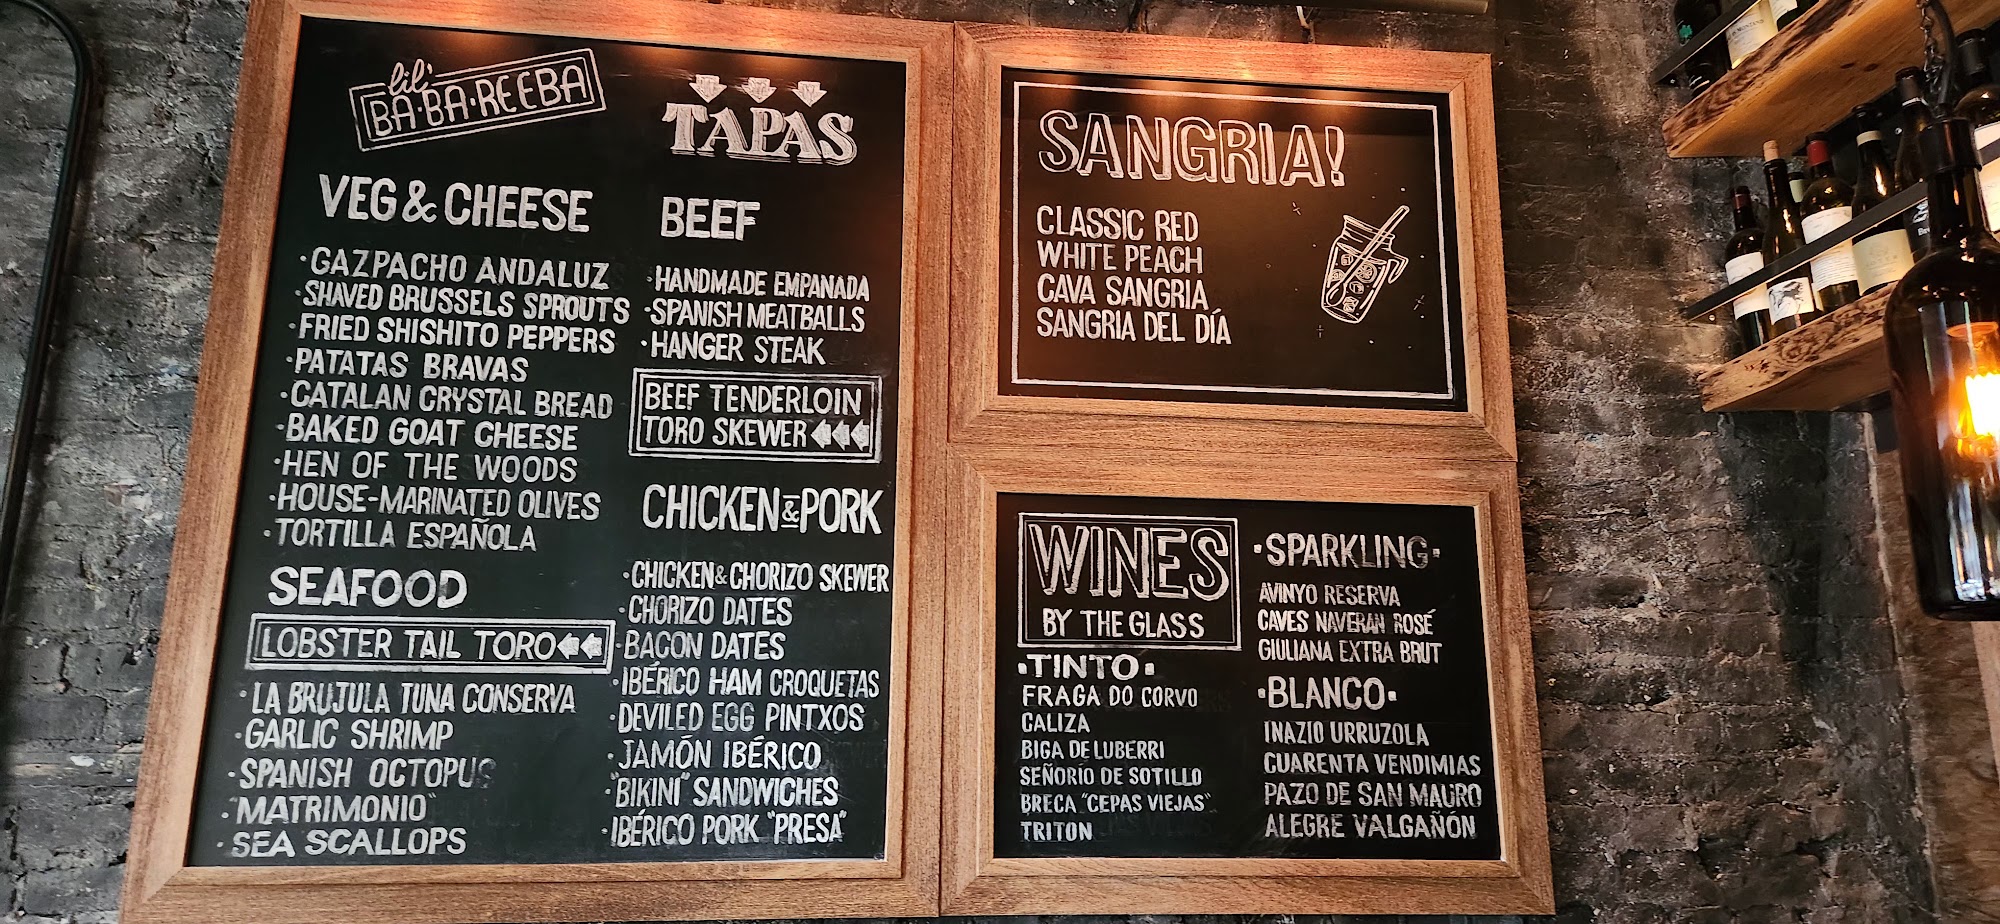 lil'
BA·BA·REEBA
TAPAS
VEG & CHEESE
· GAZPACHO ANDALUZ
· SHAVED BRUSSELS SPROUTS
· FRIED SHISHITO PEPPERS
· PATATAS BRAVAS
· CATALAN CRYSTAL BREAD
· BAKED GOAT CHEESE
· HEN OF THE WOODS
· HOUSE-MARINATED OLIVES
· TORTILLA ESPAÑOLA
SEAFOOD
LOBSTER TAIL TORO
· LA BRUJULA TUNA CONSERVA
· GARLIC SHRIMP
· SPANISH OCTOPUS
· "MATRIMONIO"
· SEA SCALLOPS
BEEF
· HANDMADE EMPANADA
· SPANISH MEATBALLS
· HANGER STEAK
BEEF TENDERLOIN
TORO SKEWER
CHICKEN & PORK
· CHICKEN & CHORIZO SKEWER
· CHORIZO DATES
· BACON DATES
· IBÉRICO HAM CROQUETAS
· DEVILED EGG PINTXOS
· JAMÓN IBÉRICO
· "BIKINI" SANDWICHES
· IBÉRICO PORK "PRESA"
SANGRIA!
CLASSIC RED
WHITE PEACH
CAVA SANGRIA
SANGRIA DEL DÍA
WINES
BY THE GLASS
· TINTO ·
FRAGA DO CORVO
CALIZA
BIGA DE LUBERRI
SEÑORIO DE SOTILLO
BRECA "CEPAS VIEJAS"
TRITON
· SPARKLING ·
AVINYO RESERVA
CAVES NAVERAN ROSÉ
GIULIANA EXTRA BRUT
· BLANCO ·
INAZIO URRUZOLA
CUARENTA VENDIMIAS
PAZO DE SAN MAURO
ALEGRE VALGAÑÓN